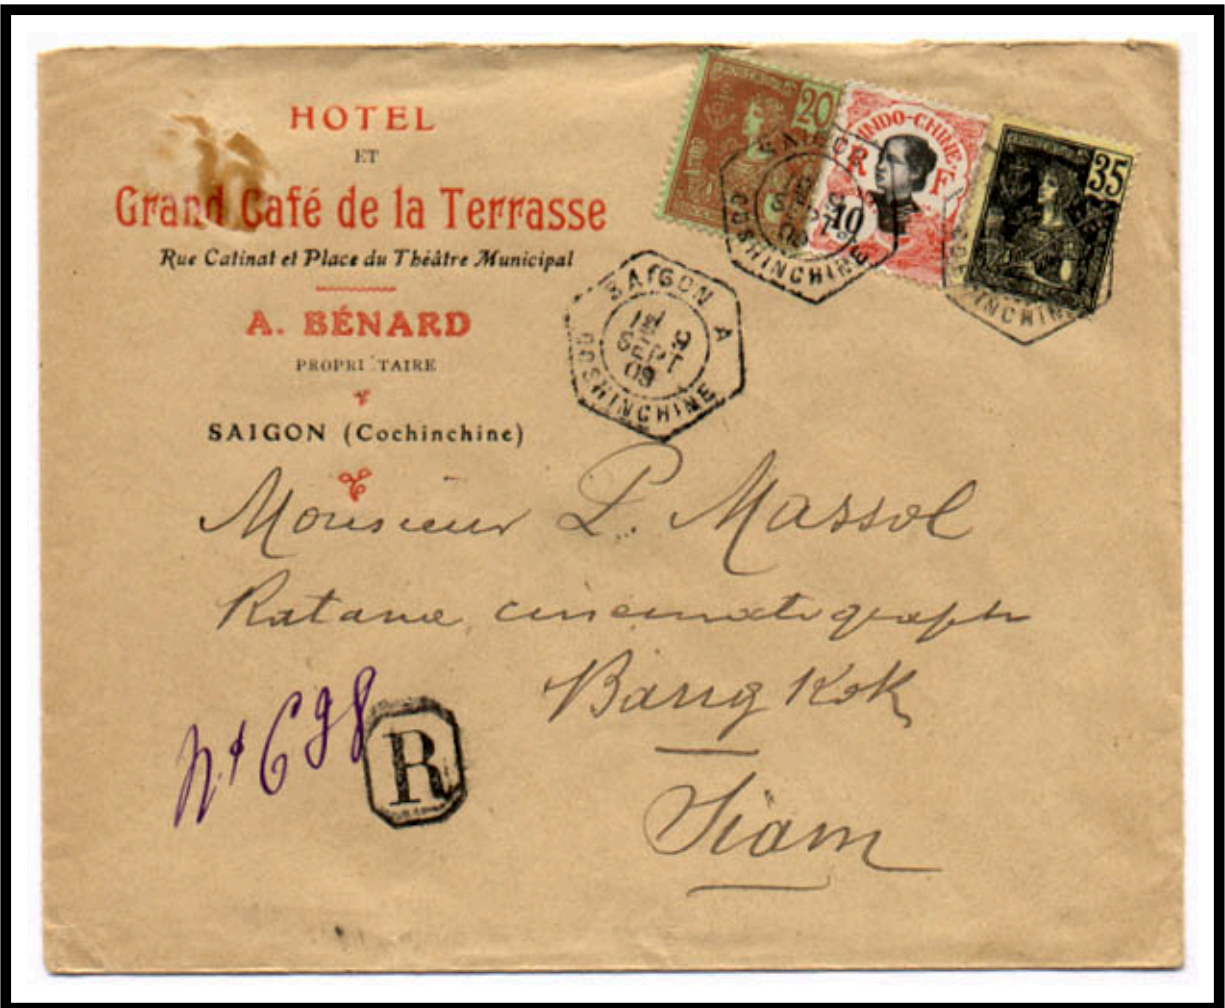 HOTEL
ET
Grand Café de la Terrasse
Rue Catinat et Place du Théâtre Municipal
A. BÉNARD
PROPRI TAIRE
SAIGON (Cochinchine)
20
INDO-CHINE
R F
10
35
SAIGON
SEPT
COSHINCHINE
COSHINCHINE
SAIGON A
SEPT
09
COSHINCHINE
Monsieur P. Massol
cinematograph
Bangkok
Siam
N° 698
R